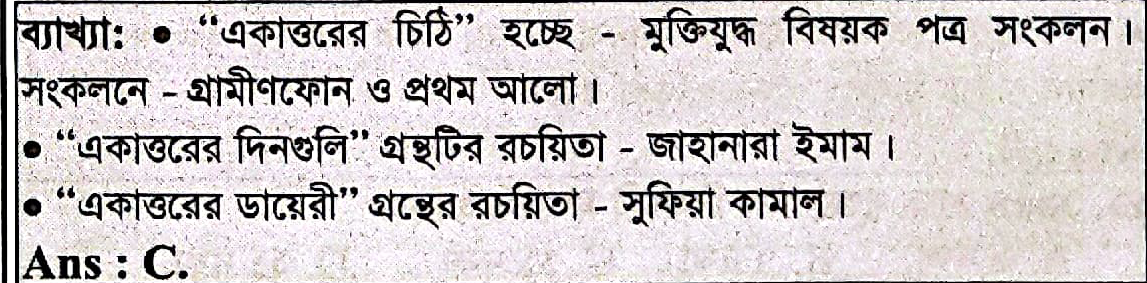 ব্যাখ্যা: ● “একাত্তরের চিঠি” হচ্ছে - মুক্তিযুদ্ধ বিষয়ক পত্র সংকলন।
সংকলনে - গ্রামীণফোন ও প্রথম আলো।
● “একাত্তরের দিনগুলি” গ্রন্থটির রচয়িতা - জাহানারা ইমাম।
● “একাত্তরের ডায়েরী” গ্রন্থের রচয়িতা - সুফিয়া কামাল।
Ans : C.